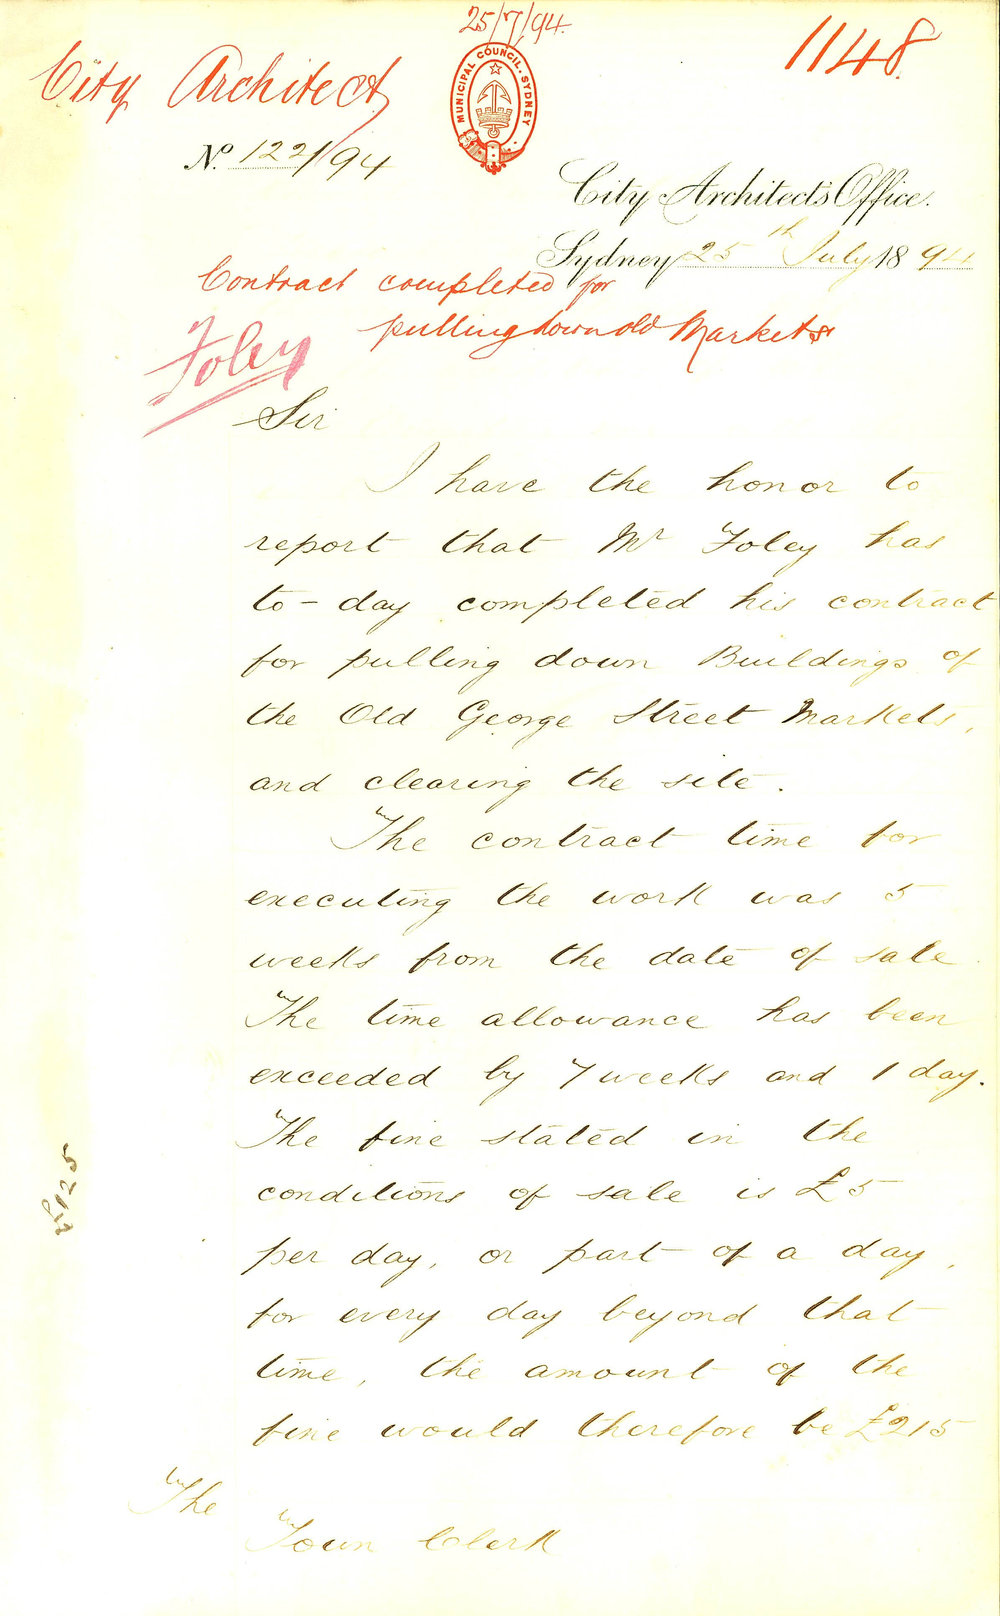 25/7/94.
1148.
City Architect
MUNICIPAL COUNCIL. SYDNEY
No. 122/94
City Architect's Office.
Sydney 25th July 1894
Contract completed for
pulling down old Markets
Foley
Sir
I have the honor to
report that Mr Foley has
to-day completed his contract
for pulling down Buildings of
the Old George Street Markets,
and clearing the site.
The contract time for
executing the work was 5
weeks from the date of sale.
The time allowance has been
exceeded by 7 weeks and 1 day.
The fine stated in the
conditions of sale is £5
per day, or part of a day,
for every day beyond that
time, the amount of the
fine would therefore be £215
The
Town Clerk